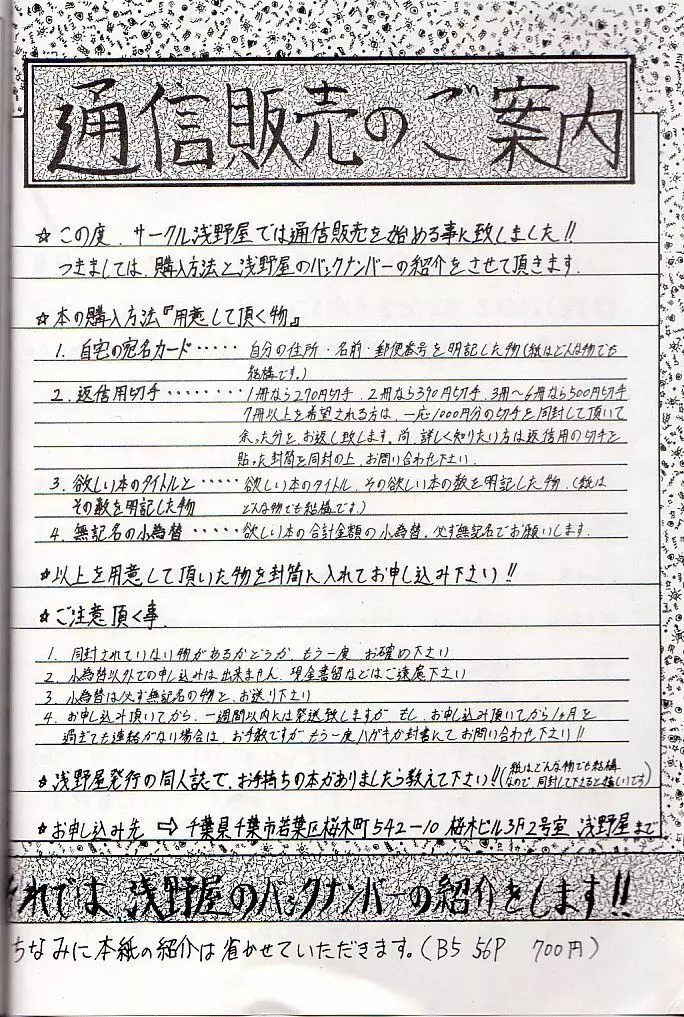 通信販売のご案内
☆この度、サークル浅野屋では通信販売を始める事に致しました!!
つきましては、購入方法と浅野屋のバックナンバーの紹介をさせて頂きます。
☆本の購入方法『用意して頂く物』
1. 自宅の宛名カード・・・・・ 自分の住所・名前・郵便番号を明記した物(紙はどんな物でも
結構です。)
2. 返信用切手・・・・・・・・ 1冊なら270円切手、2冊なら390円切手、3冊〜6冊なら500円切手
7冊以上を希望される方は、一応1000円分の切手を同封して頂いて
余った分を、お返し致します。尚、詳しく知りたい方は返信用の切手を
貼った封筒を同封の上、お問い合わせ下さい。
3. 欲しい本のタイトルと・・・・・ 欲しい本のタイトル、その欲しい本の数を明記した物。(紙は
その数を明記した物 どんな物でも結構です。)
4. 無記名の小為替・・・・・ 欲しい本の合計金額の小為替。必ず無記名でお願いします。
☆以上を用意して頂いた物を封筒に入れてお申し込み下さい!!
☆ご注意頂く事。
1. 同封されていない物があるかどうか、もう一度、お確め下さい
2. 小為替以外での申し込みは出来ません。現金書留などはご遠慮下さい
3. 小為替は必ず無記名の物を、お送り下さい
4. お申し込み頂いてから、一週間以内には発送致しますが、もし、お申し込み頂いてから1ヶ月を
過ぎても連絡がない場合は、お手数ですが、もう一度ハガキか封書にて、お問い合わせ下さい!!
☆浅野屋発行の同人誌で、お手持ちの本がありましたら教えて下さい!!(紙はどんな物でも結構
なので、同封して下さると嬉しいです)
☆お申し込み先 ⇨ 千葉県千葉市若葉区桜木町542-10 桜木ビル3F2号室 浅野屋まで
それでは、浅野屋のバックナンバーの紹介をします!!
ちなみに本紙の紹介は省かせていただきます。(B5 56P 700円)